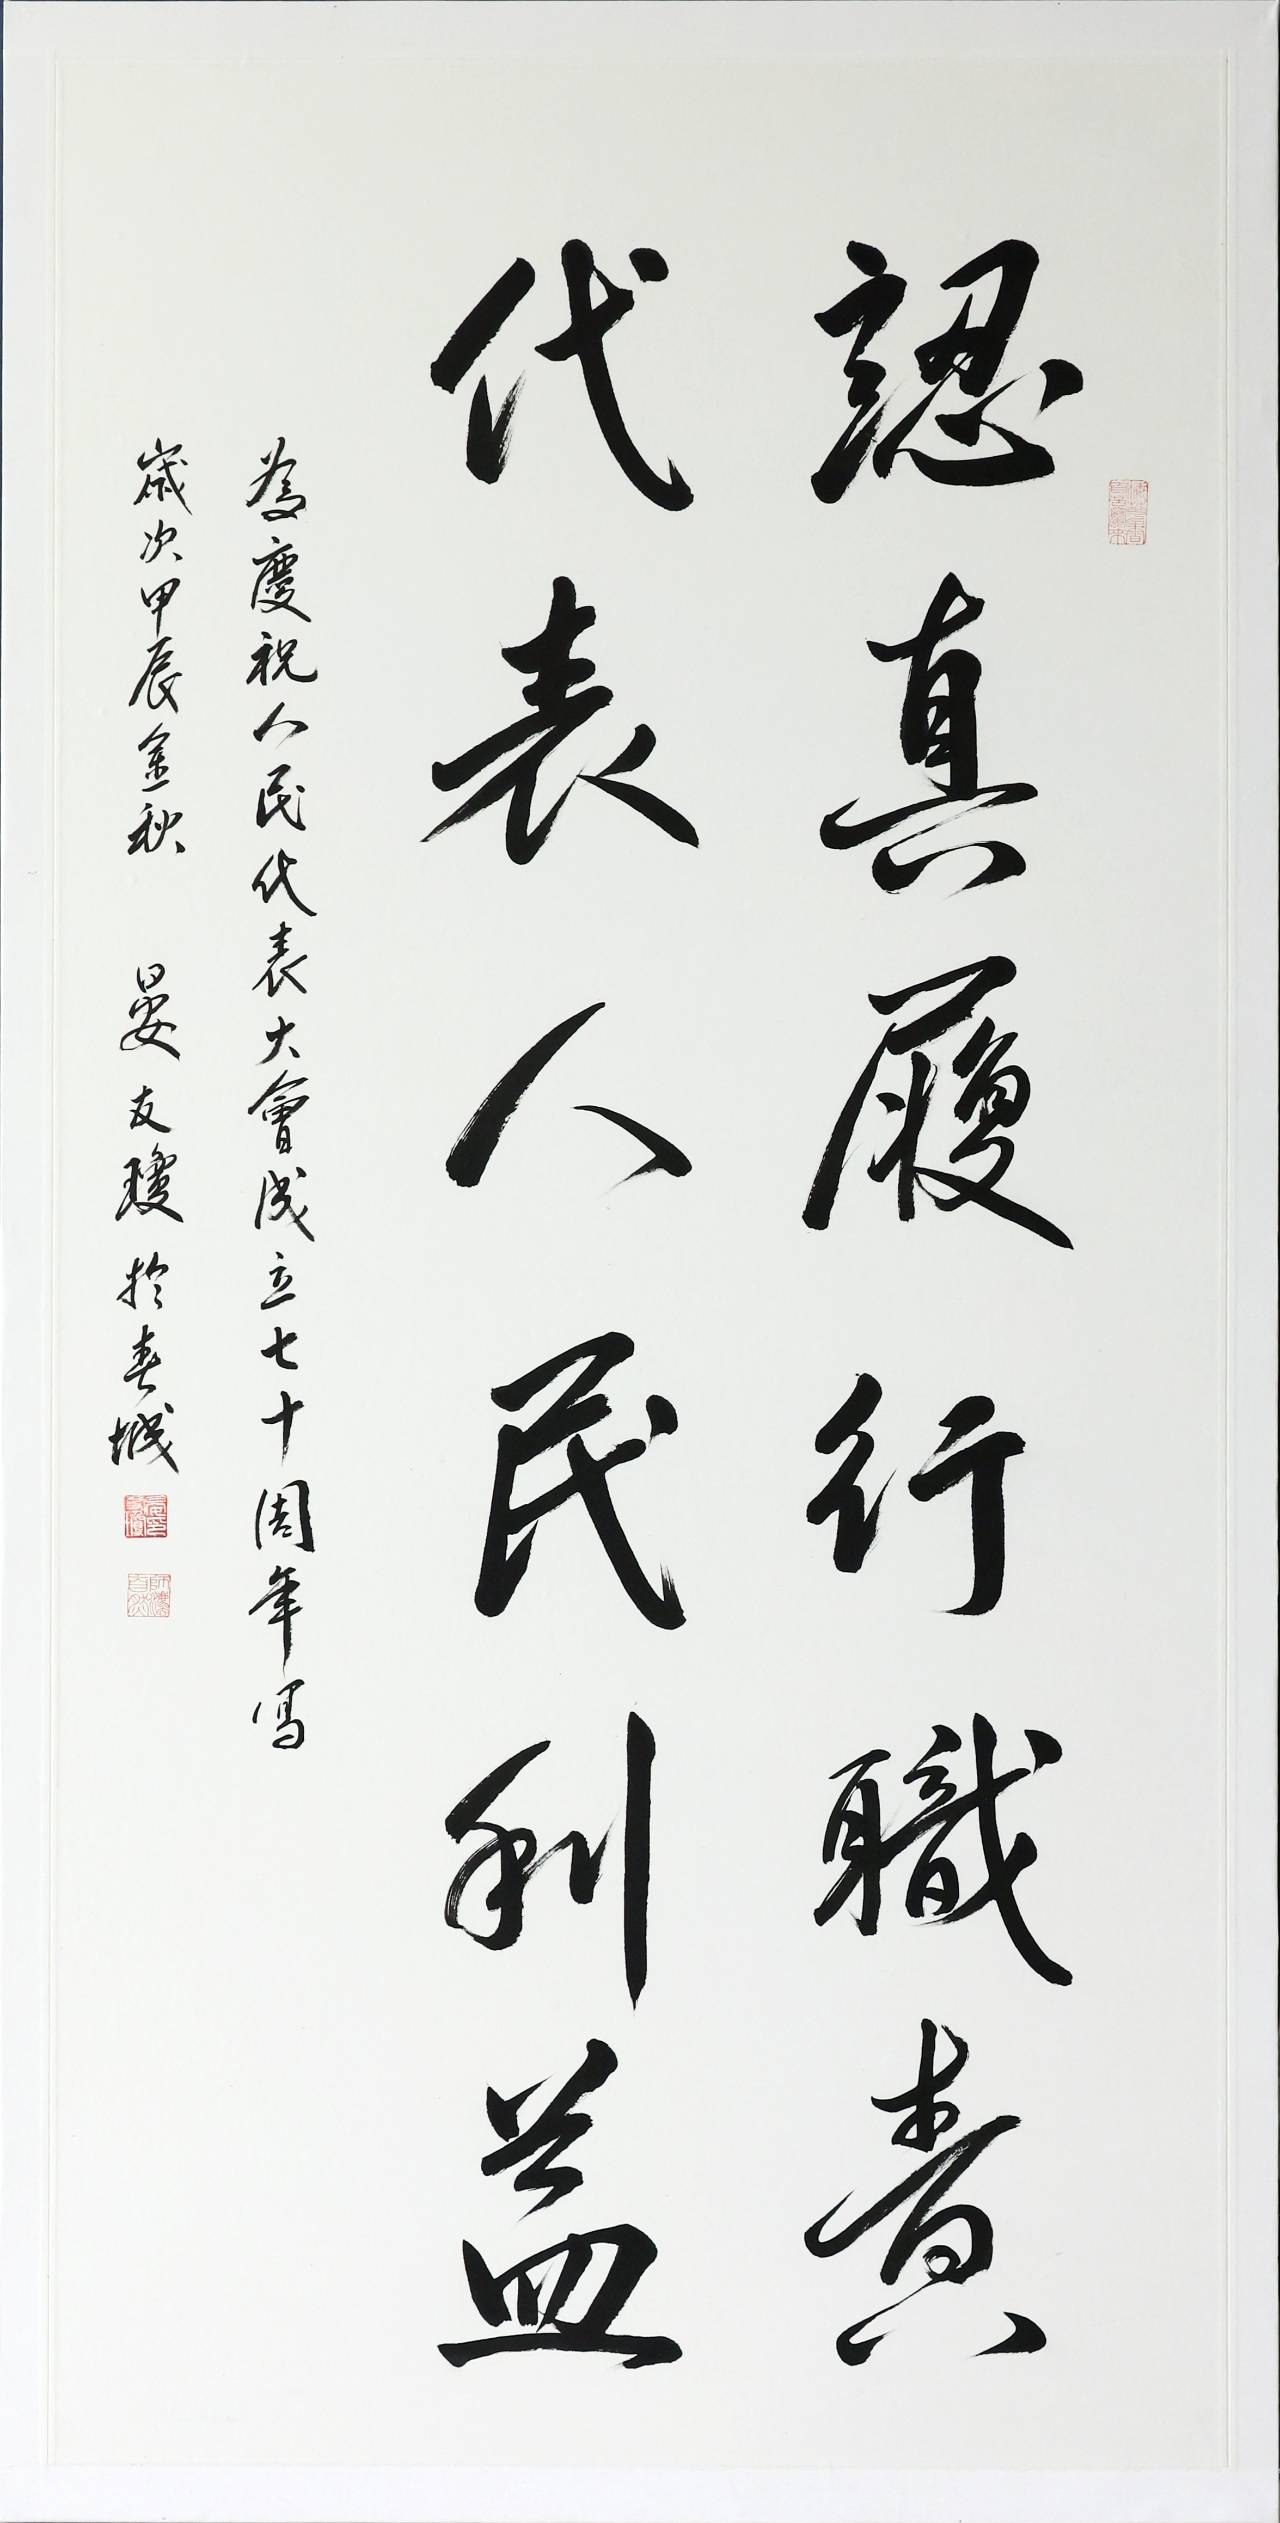 認真履行職責
代表人民利益
為慶祝人民代表大會成立七十周年寫
歲次甲辰金秋 晏友瓊於春城
師濃
自然